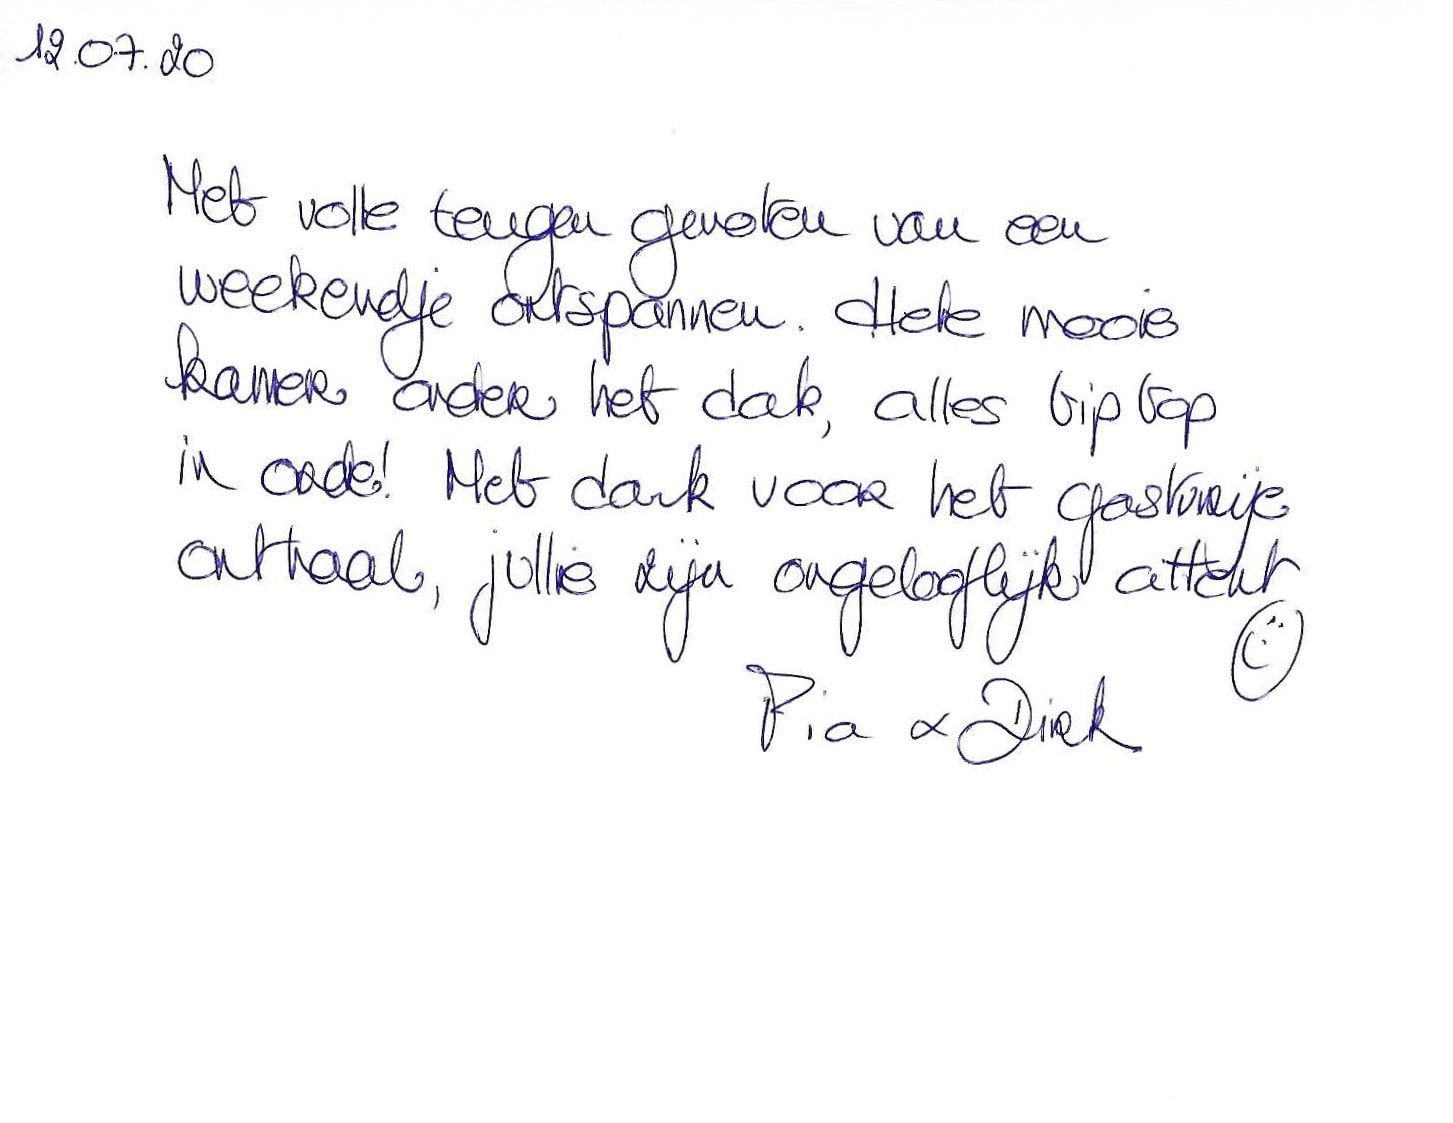 12.07.20
Met volle teugen genoten van een
weekendje ontspannen. Hele mooie
kamer onder het dak, alles tip top
in orde! Met dank voor het gastvrije
onthaal, jullie zijn ongelooflijk attent
Pia & Dirk